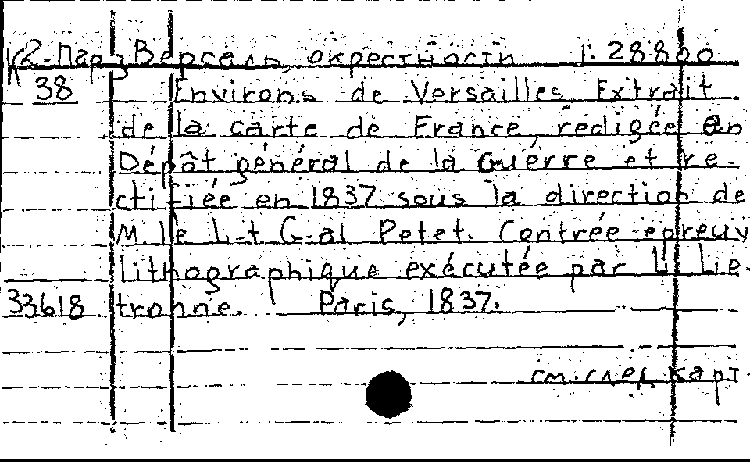 К2-Пар Версаль, окрестности 1:28800
38 Environs de Versailles Extrait
de la carte de France, redigée en
Dépôt général de la Guerre et re-
ctifiée en 1837 sous la direction de
M. le L-t G-al Petet. Contrée épreuv
lithographique exécutée par L. Lie-
33618 tronne. Paris, 1837.
см. след. карт.